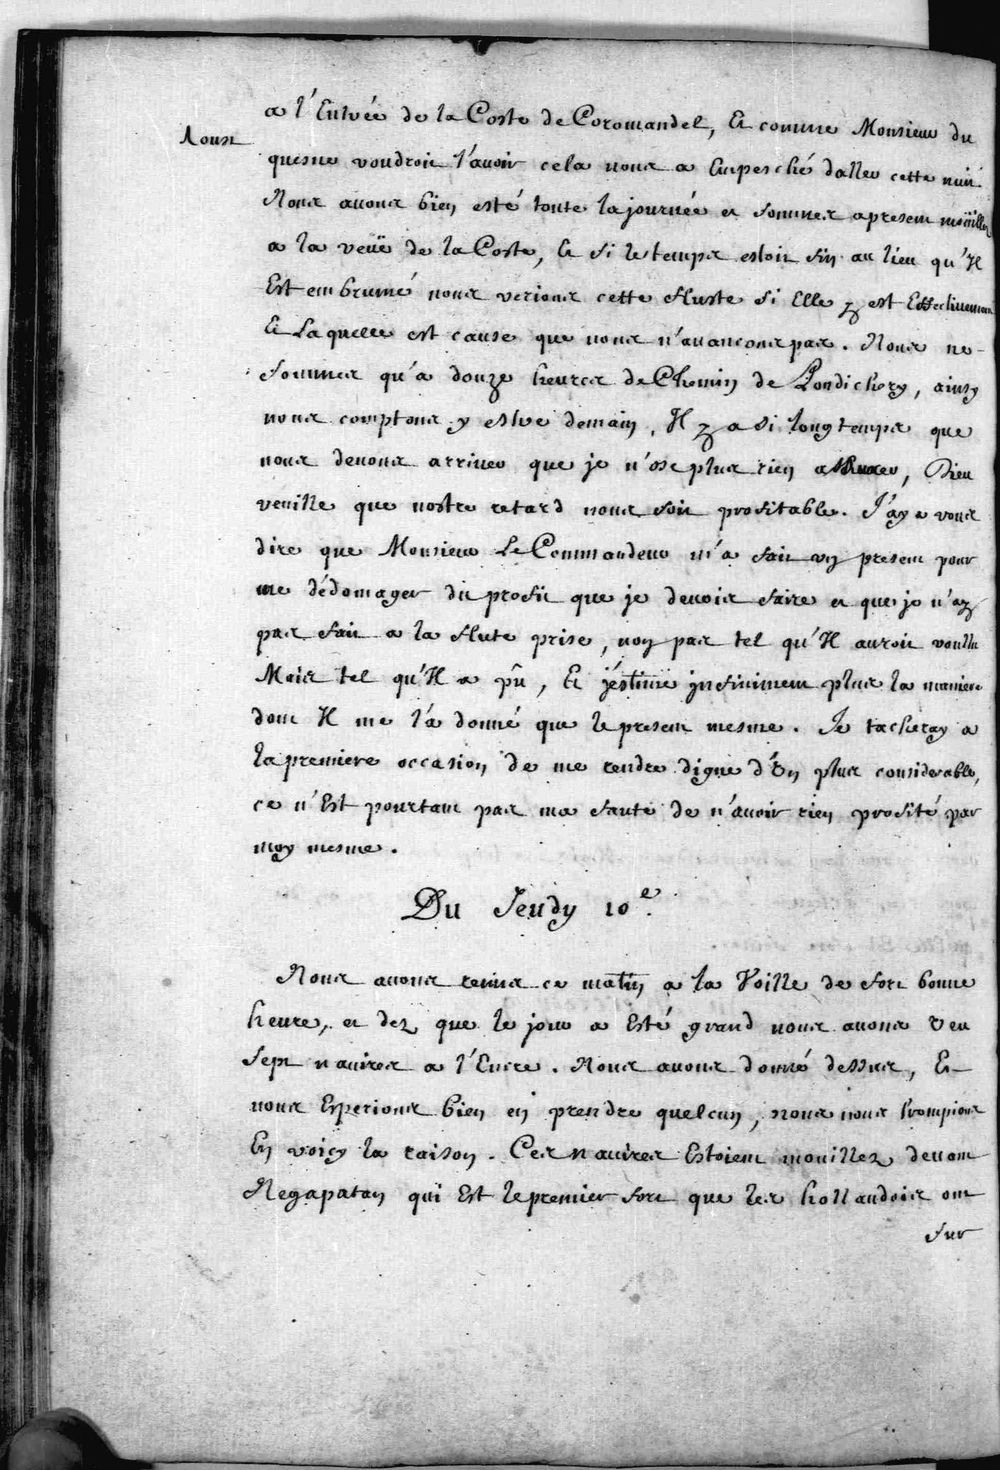 Aoust
a l'Entrée de la Coste de Coromandel, Et comme Monsieur du
quesne voudroit l'avoir cela nous a Empesché daller cette nuit.
Nous avons bien esté toute la journée et sommes apresent moüillez
a la veuë de la Coste, Et si le temps estoit fin au lieu qu'Il
Est embrumé nous verions cette fluste si Elle y est Effectivement
Et Laquelle est cause que nous n'avancons pas. Nous ne
sommes qu'a douze heures de Chemin de Pondichery, ainsy
nous comptons y estre demain, Il y a si longtemps que
nous devons arriver que je n'ose plus rien assurer, Dieu
veuille que nostre retard nous soit profitable. J'ay a vous
dire que Monsieur Le Commandeur m'a fait un present pour
me dédomager du profit que je devois faire et que je n'ay
pas fait a la flute prise, non pas tel qu'Il auroit voullu
Mais tel qu'Il a pû, Et j'estime infiniment plus la maniere
dont Il me l'a donné que le present mesme. Je tacheray a
la premiere occasion de me rendre digne d'Un plus considerable,
ce n'Est pourtant pas ma faute de n'avoir rien profité par
moy mesme.
Du Jeudy 10e.
Nous avons remis ce matin a la Voille de fort bonne
heure, et dez que le jour a Esté grand nous avons veu
sept navires a l'Encre. Nous avons donné dessus, Et
nous Esperions bien en prendre quelcun, nous nous trompions
En voicy la raison. Ces navires Estoient mouillez devant
Negapatan qui Est le premier fort que les hollandois ont
sur